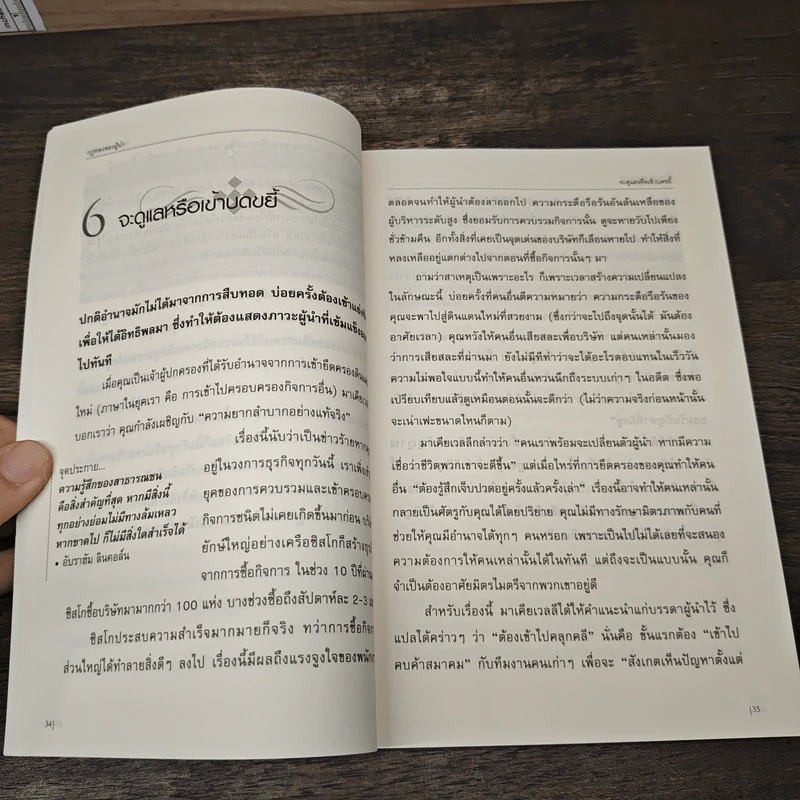 กฎทองของผู้นำ
6 จะดูแลหรือเข้าบดขยี้
ปกติอำนาจมักไม่ได้มาจากการสืบทอด บ่อยครั้งต้องเข้าแย่งชิง
เพื่อให้ได้อิทธิพลมา ซึ่งทำให้ต้องแสดงภาวะผู้นำที่เข้มแข็งออก
ไปทันที
เมื่อคุณเป็นเจ้าผู้ปกครองที่ได้รับอำนาจจากการเข้ายึดครองดินแดน
ใหม่ (ภาษาในยุคเรา คือ การเข้าไปครอบครองกิจการอื่น) มาเคียเวลลี
บอกเราว่า คุณกำลังเผชิญกับ “ความยากลำบากอย่างแท้จริง”
เรื่องนี้นับว่าเป็นข่าวร้ายหาก
อยู่ในวงการธุรกิจทุกวันนี้ เราเพิ่ง
ยุคของการควบรวมและเข้าครอบครอง
กิจการชนิดไม่เคยเกิดขึ้นมาก่อน
ยักษ์ใหญ่อย่างเครือซิสโก้ก็สร้างธุรกิจ
จากการซื้อกิจการ ในช่วง 10 ปีที่ผ่าน
จุดประกาย...
ความรู้สึกของสาธารณชน
คือสิ่งสำคัญที่สุด หากมีสิ่งนี้
ทุกอย่างย่อมไม่มีทางล้มเหลว
หากขาดไป ก็ไม่มีสิ่งใดสำเร็จได้
• อับราฮัม ลินคอล์น
ซิสโกซื้อบริษัทมามากกว่า 100 แห่ง บางช่วงซื้อถึงสัปดาห์ละ 2-3
ซิสโกประสบความสำเร็จมากมายก็จริง ทว่าการซื้อกิจการ
ส่วนใหญ่ได้ทำลายสิ่งดีๆ ลงไป เรื่องนี้มีผลถึงแรงจูงใจของพนัก
34|
จะดูแลหรือเข้าบดขยี้
ตลอดจนทำให้ผู้นำต้องลาออกไป ความกระตือรือร้นอันล้นเหลือของ
ผู้บริหารระดับสูง ซึ่งยอมรับการควบรวมกิจการนั้น ดูจะหายวับไปเพียง
ชั่วข้ามคืน อีกทั้งสิ่งที่เคยเป็นจุดเด่นของบริษัทก็เลือนหายไป ทำให้สิ่งที่
หลงเหลืออยู่แตกต่างไปจากตอนที่ซื้อกิจการนั้นๆ มา
ถามว่าสาเหตุเป็นเพราะอะไร ก็เพราะเวลาสร้างความเปลี่ยนแปลง
ในลักษณะนี้ บ่อยครั้งที่คนอื่นตีความหมายว่า ความกระตือรือร้นของ
คุณจะพาไปสู่ดินแดนใหม่ที่สวยงาม (ซึ่งกว่าจะไปถึงจุดนั้นได้ มันต้อง
อาศัยเวลา) คุณหวังให้คนอื่นเสียสละเพื่อบริษัท แต่คนเหล่านั้นมอง
ว่าการเสียสละที่ผ่านมา ยังไม่มีทีท่าว่าจะได้อะไรตอบแทนในเร็ววัน
ความไม่พอใจแบบนี้ทำให้คนอื่นหวนนึกถึงระบบเก่าๆ ในอดีต ซึ่งพอ
เปรียบเทียบแล้วดูเหมือนตอนนั้นจะดีกว่า (ไม่ว่าความจริงก่อนหน้านั้น
จะเน่าเฟะขนาดไหนก็ตาม)
มาเคียเวลลีกล่าวว่า “คนเราพร้อมจะเปลี่ยนตัวผู้นำ หากมีความ
เชื่อว่าชีวิตพวกเขาจะดีขึ้น” แต่เมื่อไหร่ที่การยึดครองของคุณทำให้คน
อื่น “ต้องรู้สึกเจ็บปวดอยู่ครั้งแล้วครั้งเล่า” เรื่องนี้อาจทำให้คนเหล่านั้น
กลายเป็นศัตรูกับคุณได้โดยปริยาย คุณไม่มีทางรักษามิตรภาพกับคนที่
ช่วยให้คุณมีอำนาจได้ทุกๆ คนหรอก เพราะเป็นไปไม่ได้เลยที่จะสนอง
ความต้องการให้คนเหล่านั้นได้ในทันที แต่ถึงจะเป็นแบบนั้น คุณก็
จำเป็นต้องอาศัยมิตรไมตรีจากพวกเขาอยู่ดี
สำหรับเรื่องนี้ มาเคียเวลลีได้ให้คำแนะนำแก่บรรดาผู้นำไว้ ซึ่ง
แปลได้คร่าวๆ ว่า “ต้องเข้าไปคลุกคลี” นั่นคือ ขั้นแรกต้อง “เข้าไป
คบค้าสมาคม” กับทีมงานคนเก่าๆ เพื่อจะ “สังเกตเห็นปัญหาตั้งแต่
|35